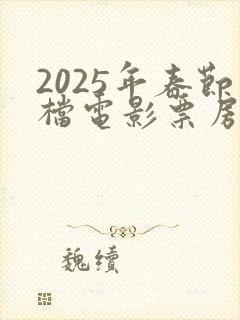 2025年春節
檔電影票房
魏續